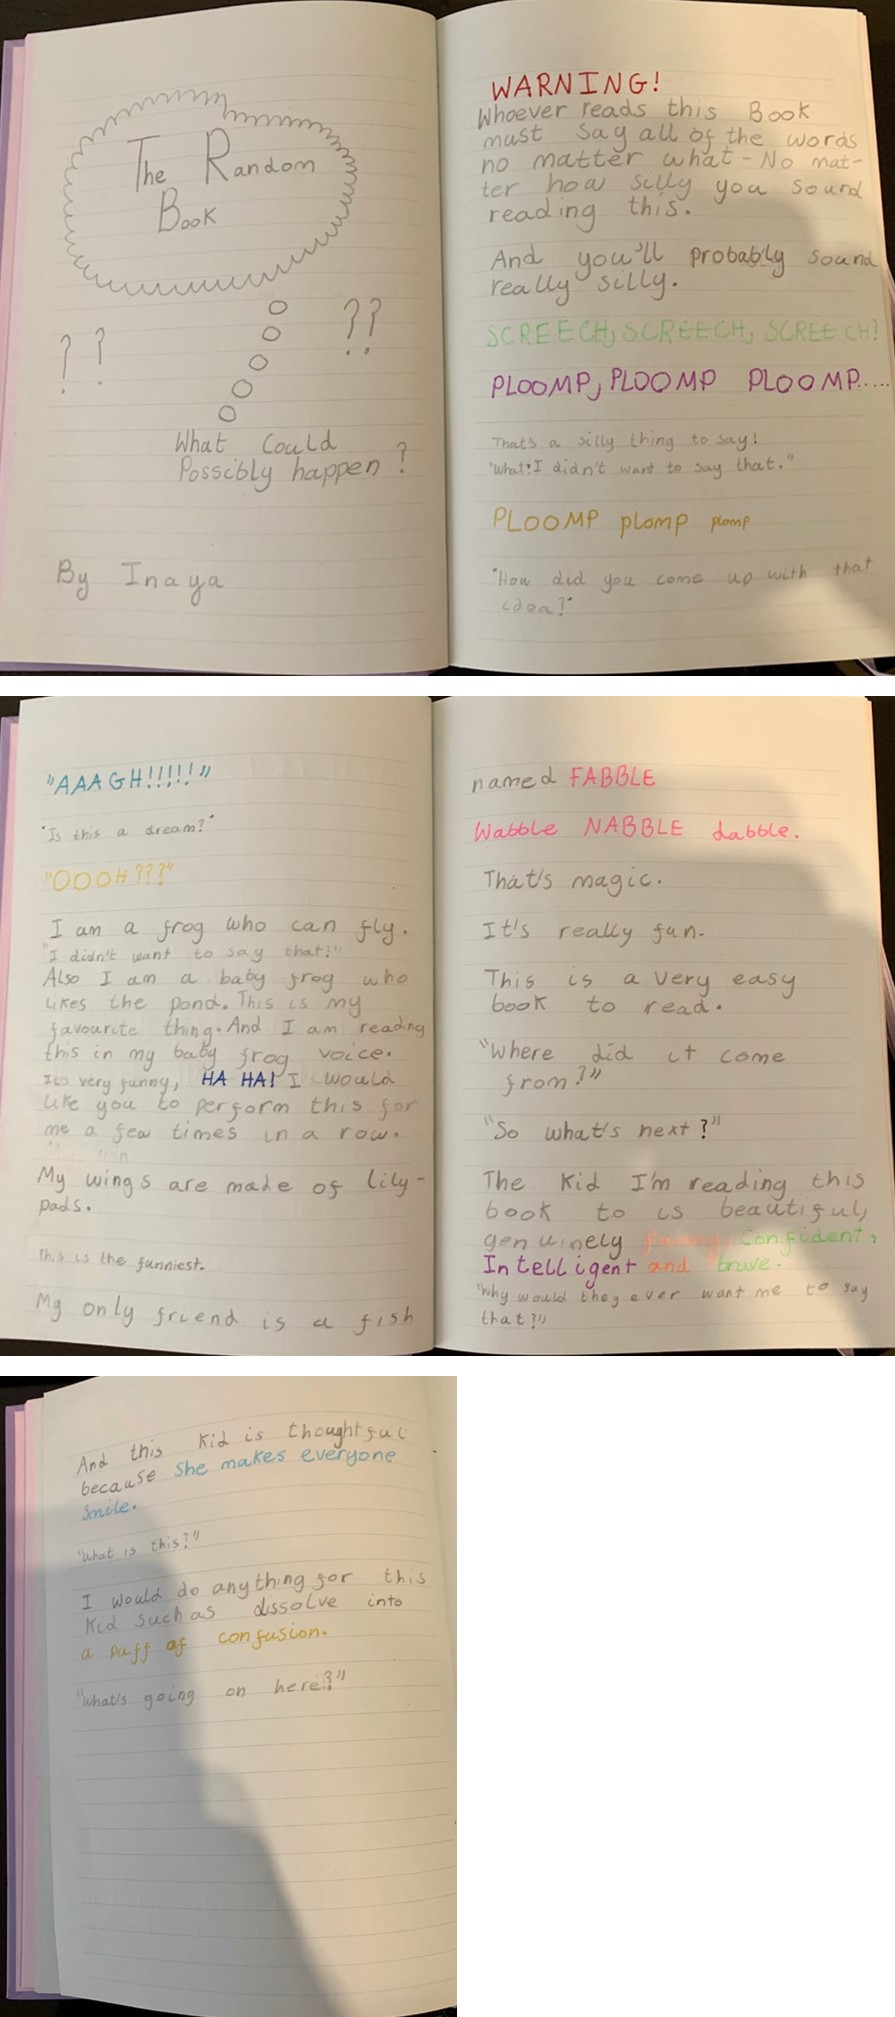 The Random
Book
? ?
??
What Could
Possibly happen ?
By Inaya
WARNING!
Whoever reads this Book
must say all of the words
no matter what - No mat-
ter how silly you sound
reading this.
And you'll probably sound
really silly.
SCREECH, SCREECH, SCREECH!
PLOOMP, PLOOMP PLOOMP.....
That's a silly thing to say!
"What? I didn't want to say that."
PLOOMP plomp plomp
"How did you come up with that
idea?"
"AAAGH!!!!!"
"Is this a dream?"
"OOOH???"
I am a frog who can fly.
"I didn't want to say that!"
Also I am a baby frog who
likes the pond. This is my
favourite thing. And I am reading
this in my baby frog voice.
Its very funny, HA HA! I would
like you to perform this for
me a few times in a row.
My wings are made of lily-
pads.
This is the funniest.
My only friend is a fish
named FABBLE
Wabble NABBLE dabble.
That's magic.
It's really fun.
This is a very easy
book to read.
"Where did it come
from?"
"So what's next?"
The Kid I'm reading this
book to is beautiful,
genuinely funny, Confident,
Intelligent and brave.
"Why would they ever want me to say
that?"
And this Kid is thoughtful
because she makes everyone
Smile.
"What is this?"
I would do anything for this
Kid such as dissolve into
a puff of confusion.
"What's going on here?"